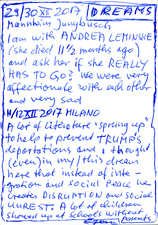 29/30 XII 2017 DREAMS
Mannheim Jungbusch
I am with ANDREA LEMINSKE
(she died 11½ months ago)
and ask her if she REALLY
HAS TO GO? We were very
affectionate with each other
and very sad
11/12 XII 2017 MILANO
A lot of literature "sprung up"
to help to prevent TRUMPS
deportations and I thought
(even) in my/this dream
here that instead of inte-
gration and social peace he
creates DISRUPTION and social
UNREST. A lot of children
showed up at schools without
parents